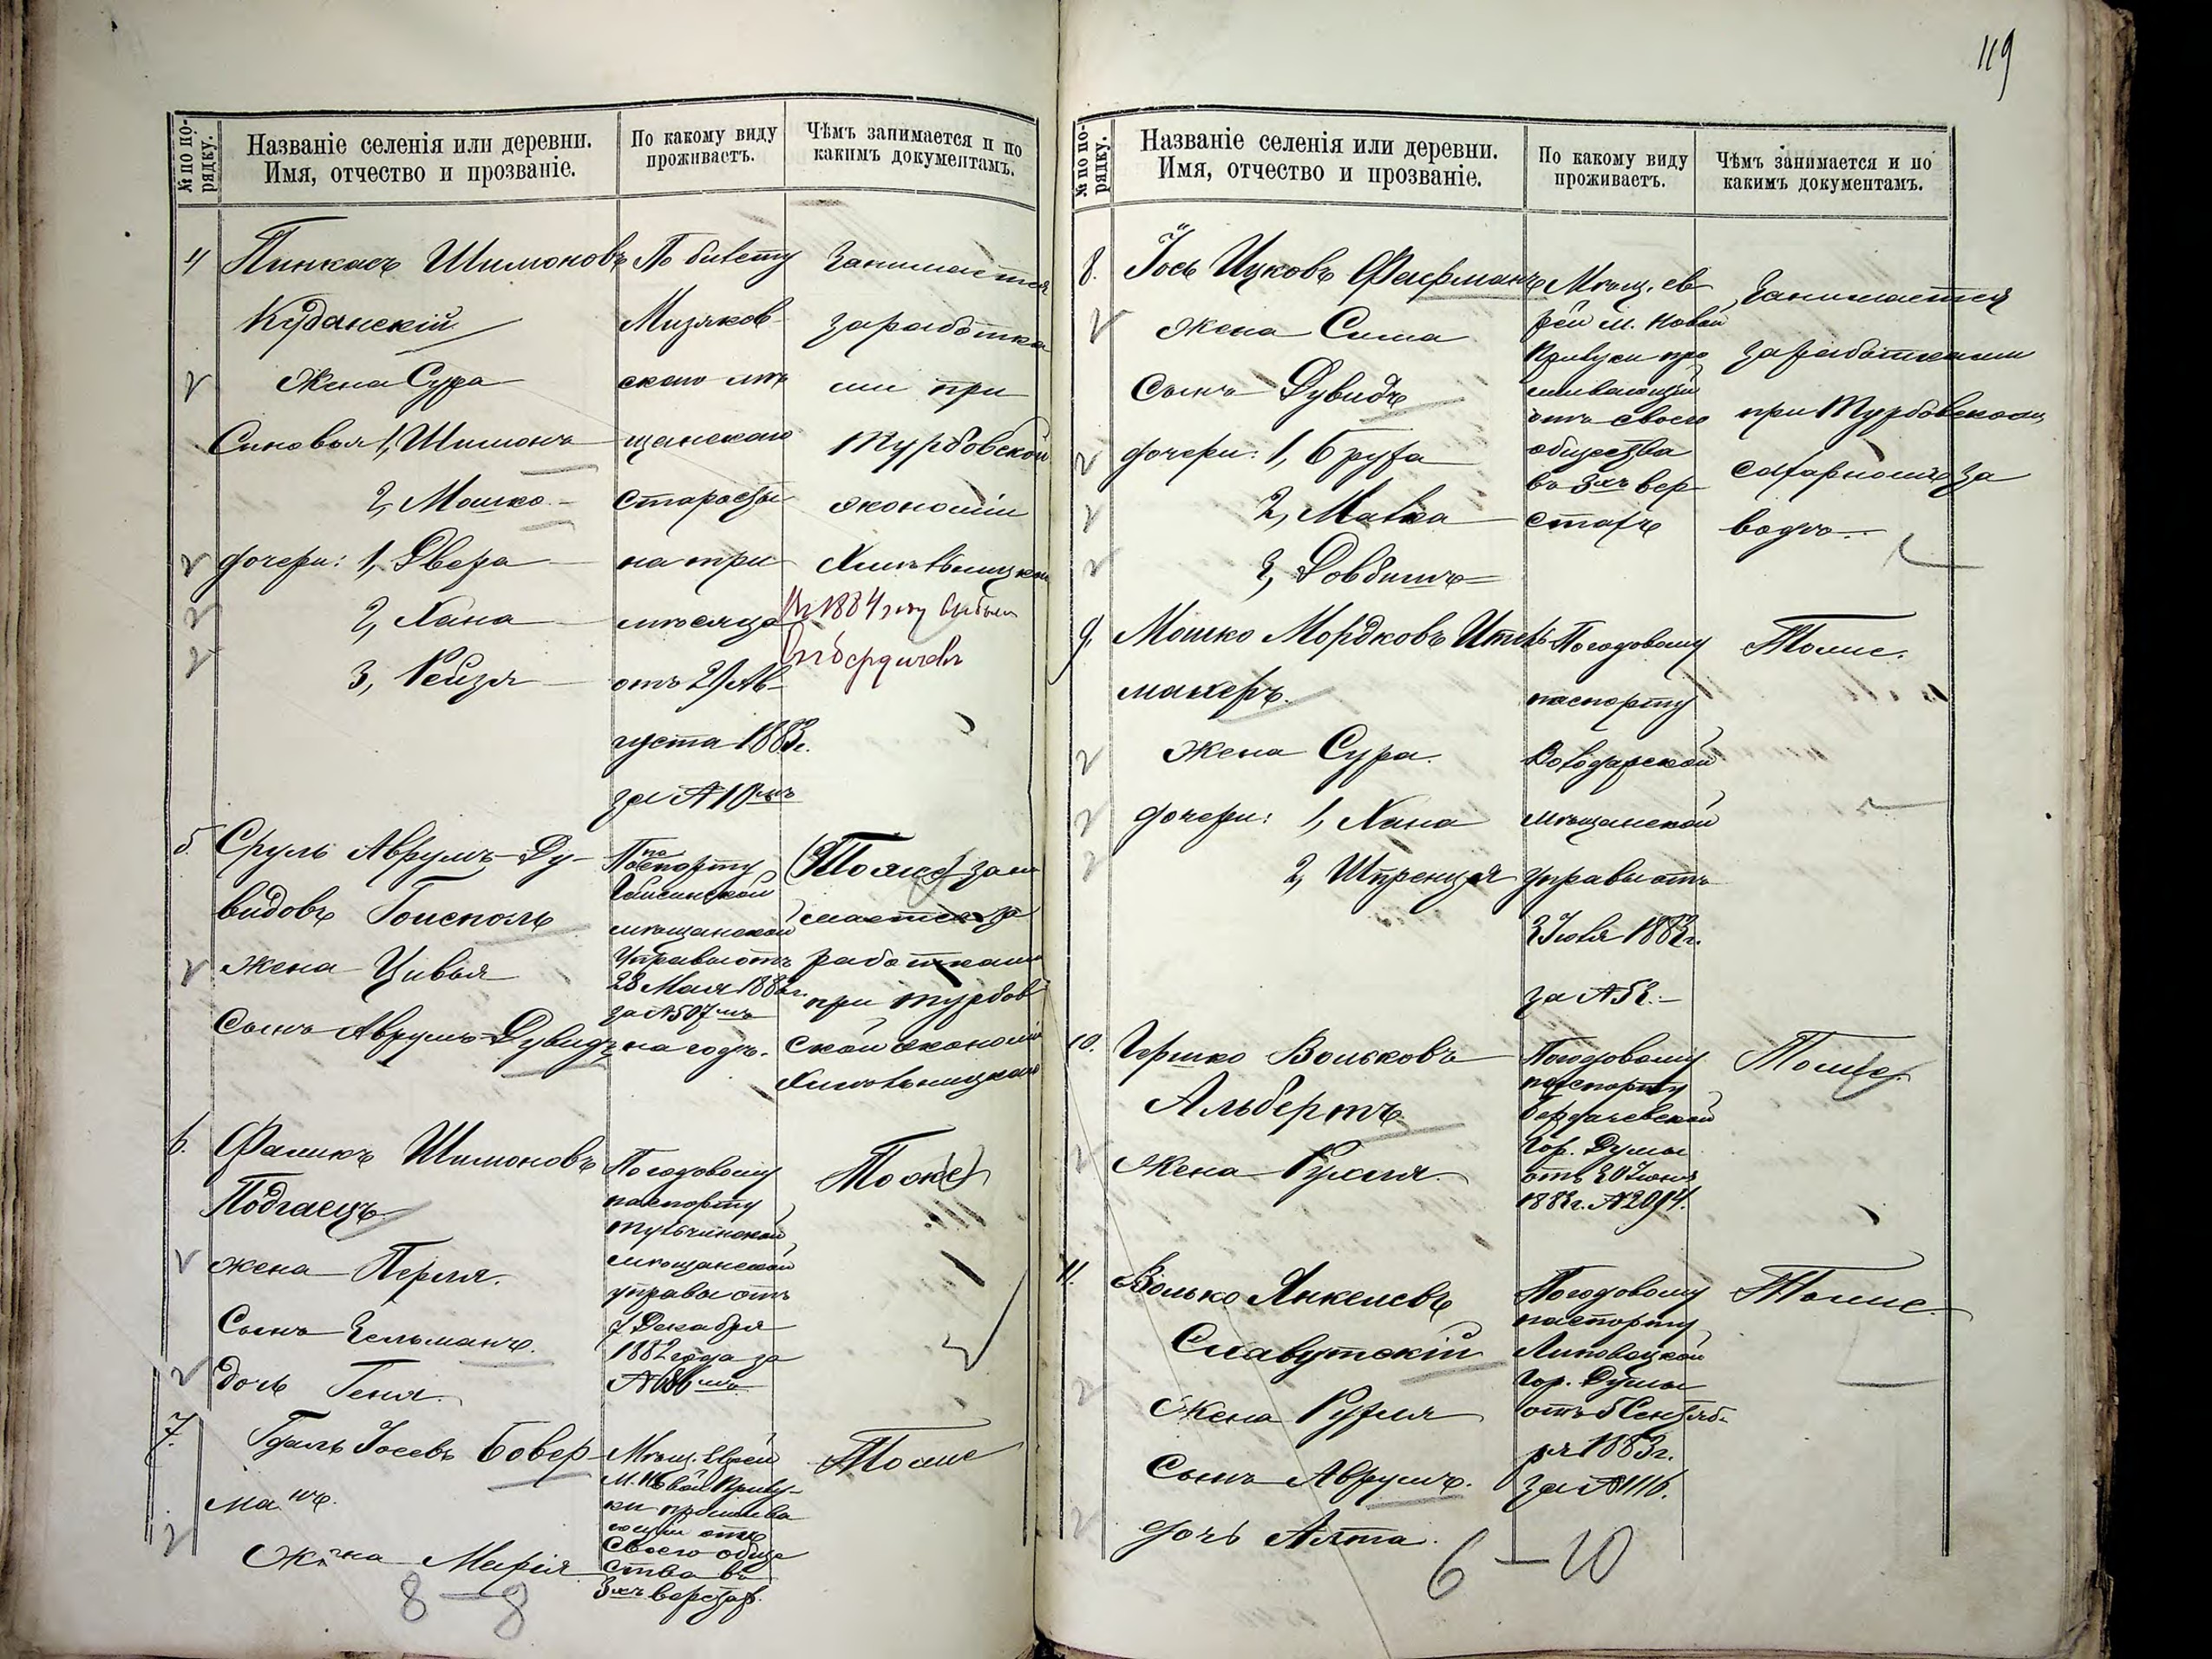 119
№ по по-
рядку.
Названіе селенія или деревни.
Имя, отчество и прозваніе.
По какому виду
проживаетъ.
Чѣмъ занимается и по
какимъ документамъ.
4 Пинкасъ Шимоновъ
Куданскій
Жена Сура
Сыновья 1, Шимонъ
2, Мошко
дочери: 1, Двера
2, Хана
3, Рейзя
По билету
Мизяков
скаго мѣ
щанскаго
старосты
на три
мѣсяца
отъ 21 Ав-
густа 1883г.
за №
Занимается
заработка
ми при
Турбовской
экономіи
Въ 1884 году выбыли
въ Бердичевъ
5. Сруль Аврумъ-Ду-
видовъ Гоисполь
жена Цивья
Сынъ Аврумъ-Дувидъ
Паспорту
Гайсинской
мѣщанской
Управы отъ
28 Мая 1883г.
за №507мъ
на годъ.
Тоже зани
мается за
работками
при Турбов
ской экономіи
6. Фаликъ Шимоновъ
Подгаецъ
жена Перля.
Сынъ Зельманъ.
дочь Геня.
По годовому
паспорту
Тульчинской
мѣщанской
управы отъ
7 Декабря
1882 года за
Тоже
7. Гдаль Іосевъ Бовер
манъ.
Жена Марія
Мѣщ. Еврей
м. Новой Приву-
ки прожива
ющій отъ
своего обще
ства въ
3хъ верстах.
Тоже
8 — 8
№ по по-
рядку.
Названіе селенія или деревни.
Имя, отчество и прозваніе.
По какому виду
проживаетъ.
Чѣмъ занимается и по
какимъ документамъ.
8. Іось Ицковъ
жена Сима
Сынъ Дувидъ
дочери: 1, Бруха
2, Малка
3,
Мѣщ. ев
рей м. Новой
Привуки про
живающій
отъ своего
общества
въ 3хъ вер
стахъ
Занимается
заработками
при Турбовскомъ
сахарномъ за
водѣ
9. Мошко Мордковъ
махеръ.
Жена Сура.
дочери: 1, Хана
2, Шпренця
По годовому
паспорту
Володарской
мѣщанской
управы отъ
3 Іюля 1883г.
за №
Тоже.
10. Гершко Вольковъ
Альбертъ
Жена Рухля.
По годовому
паспорту
Бердичевской
Гор. Думы
отъ 30 Іюня
1883г. №2094.
Тоже.
11. Волько Янкелевъ
Славутскій
Жена Рухля
Сынъ Аврумъ.
дочь Алта.
По годовому
паспорту
Липовецкой
Гор. Думы
отъ 5 Сентяб-
ря 1883г.
за №1116.
Тоже.
6 — 10